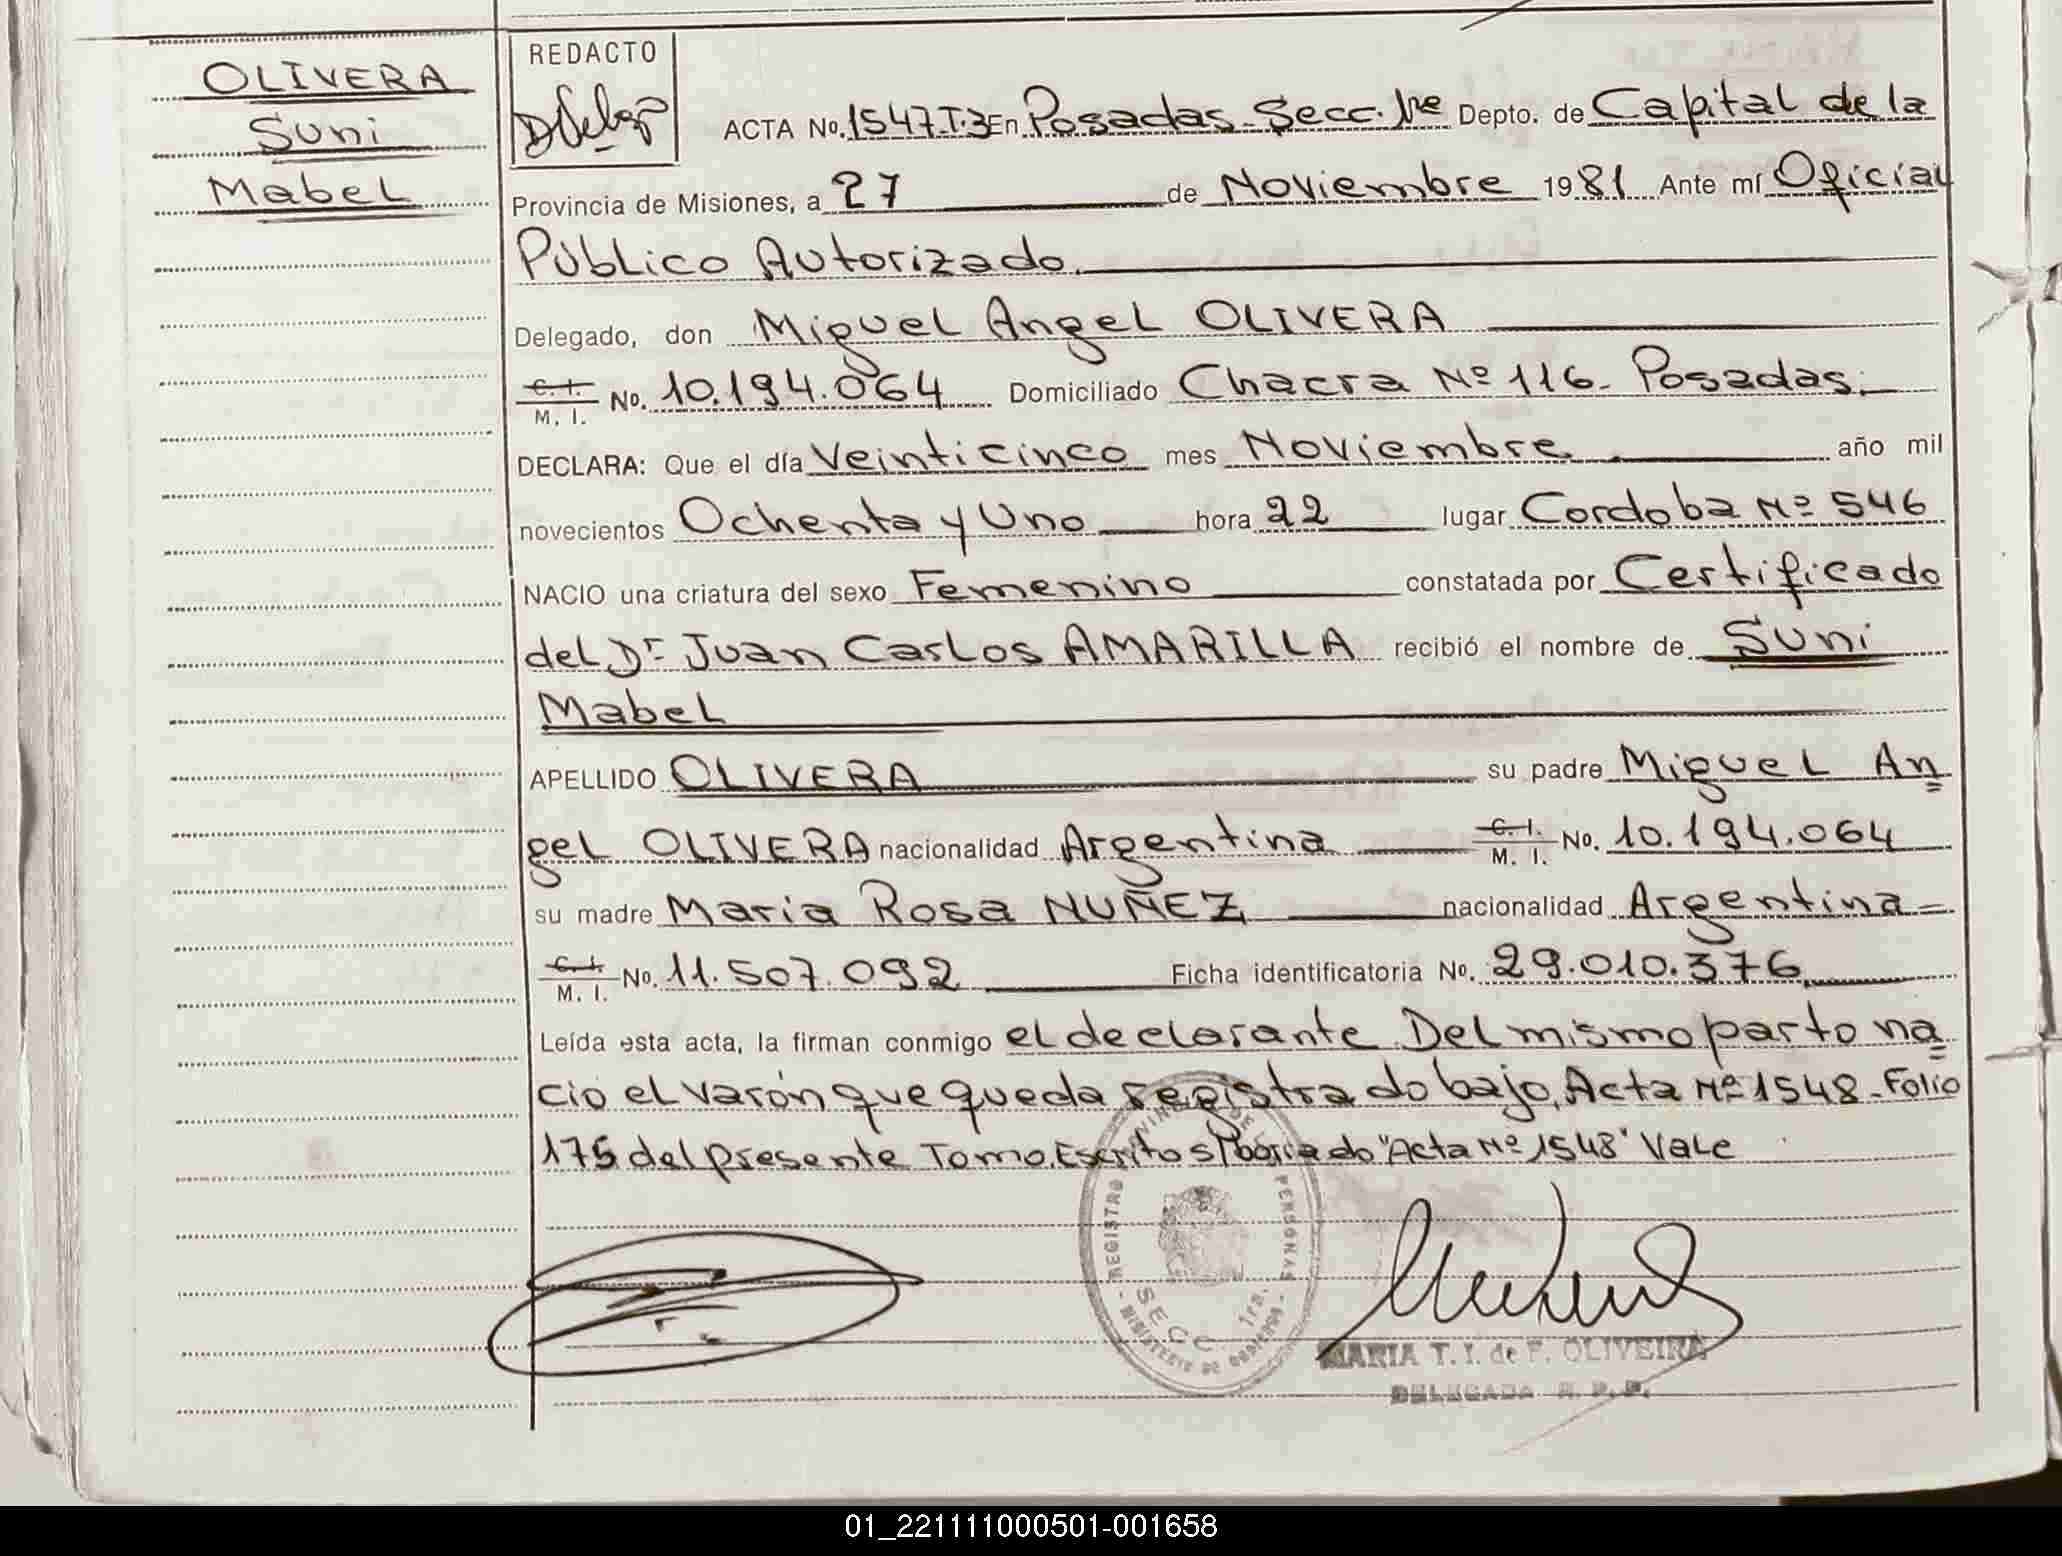 OLIVERA
Suni
Mabel
REDACTO
ACTA No. 1547 T.3 En Posadas - Secc. 1ra Depto. de Capital de la
Provincia de Misiones, a 27 de Noviembre 1981 Ante mí Oficial
Público Autorizado.
Delegado, don Miguel Angel OLIVERA
C. I. M. I. No. 10.194.064 Domiciliado Chacra Nº 116 - Posadas.
DECLARA: Que el día Veinticinco mes Noviembre año mil
novecientos Ochenta y Uno hora 22 lugar Cordoba Nº 546
NACIO una criatura del sexo Femenino constatada por Certificado
del Dr Juan Carlos AMARILLA recibió el nombre de Suni
Mabel
APELLIDO OLIVERA su padre Miguel An
gel OLIVERA nacionalidad Argentina C. I. M. I. No. 10.194.064
su madre Maria Rosa NUÑEZ nacionalidad Argentina
C. I. M. I. No. 11.507.092 Ficha identificatoria No. 29.010.376
Leída esta acta, la firman conmigo el declarante Del mismo parto na
ció el varón que queda registrado bajo Acta Nº 1548 - Folio
175 del presente Tomo. Escrito s/borrado "Acta Nº 1548" Vale
REGISTRO PROVINCIAL DE LAS PERSONAS
SECC 1ra.
- MINISTERIO DE GOBIERNO -
MARIA T. I. de F. OLIVEIRA
DELEGADA R. P. P.
01_221111000501-001658